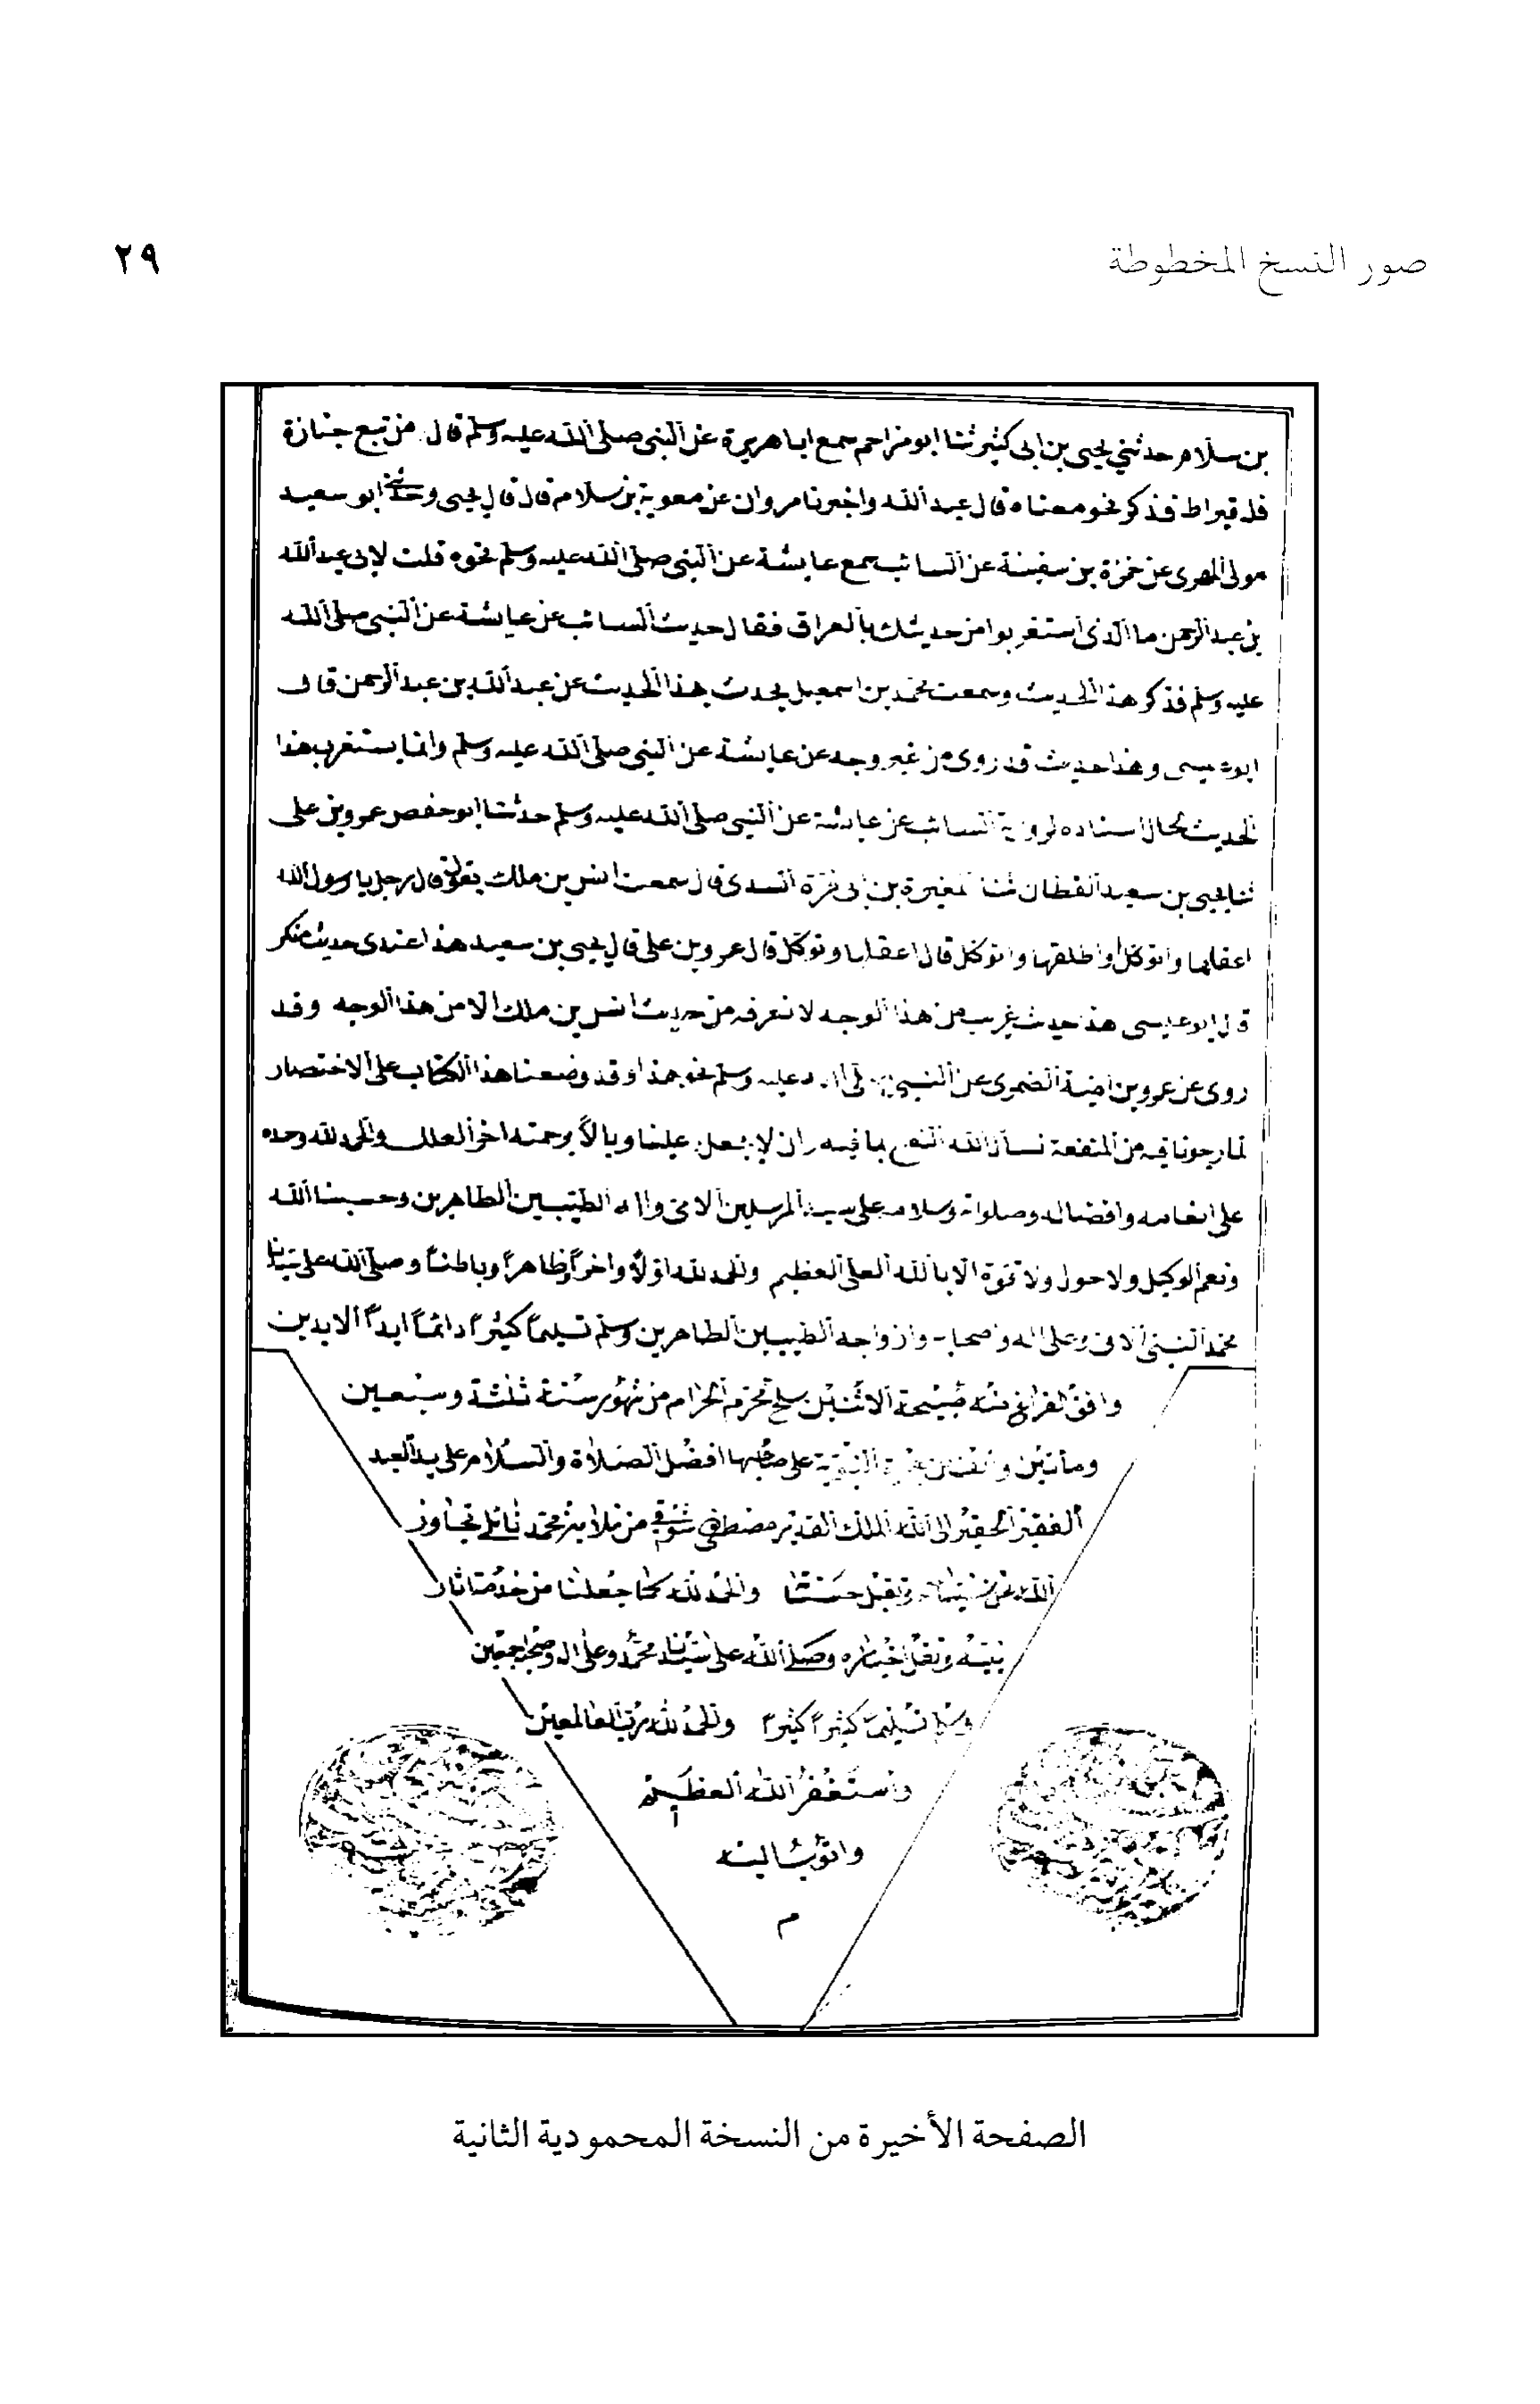 صور النسخ المخطوطة
٢٩
بن سلام حدثني يحيى بن ابى كثير ثنا ابو مزاحم سمع ابا هريرة عن النبى صلى الله عليه وسلم قال من تبع جنازة
فله قيراط فذكر نحو معناه قال عبد الله واخبرنا مروان عن معوية بن سلام قال قال يحيى وحدثنى ابو سعيد
مولى المهرى عن حمزة بن سفينة عن السائب سمع عايشة عن النبى صلى الله عليه وسلم نحوه قلت لابى عبد الله
بن عبد الرحمن ما الذى استغربوا من حديثك بالعراق فقال حديث السائب عن عايشة عن النبى صلى الله
عليه وسلم فذكر هذا الحديث وسمعت محمد بن اسمعيل يحدث بهذا الحديث عن عبد الله بن عبد الرحمن قال
ابو عيسى وهذا حديث قد روى من غير وجه عن عايشة عن النبى صلى الله عليه وسلم وانما يستغرب هذا
الحديث لحال اسناده لرواية السائب عن عايشة عن النبى صلى الله عليه وسلم حدثنا ابو حفص عمرو بن على
ثنا يحيى بن سعيد القطان ثنا المغيرة بن ابى قرة السدى قال سمعت انس بن ملك يقول قال رجل يا رسول الله
اعقلها واتوكل او اطلقها واتوكل قال اعقلها وتوكل قال عمرو بن على قال يحيى بن سعيد هذا عندى حديث منكر
قال ابو عيسى هذا حديث غريب من هذا الوجه لا نعرفه من حديث انس بن ملك الا من هذا الوجه وقد
روى عن عمرو بن امية الضمرى عن النبى صلى الله عليه وسلم نحو هذا وقد وضعنا هذا الكتاب على الاختصار
لما رجونا فيه من المنفعة نسأل الله النفع بما فيه وان لا يجعله علينا وبالا برحمته اخر العلل والحمد لله وحده
على انعامه وافضاله وصلواته وسلامه على سيد المرسلين الامى واله الطيبين الطاهرين وحسبنا الله
ونعم الوكيل ولا حول ولا قوة الا بالله العلى العظيم والحمد لله اولا واخرا وظاهرا وباطنا وصلى الله على سيدنا
محمد النبى الامى وعلى اله واصحابه وازواجه الطيبين الطاهرين وسلم تسليما كثيرا دائما ابدا الابدين
وافق الفراغ منه صبيحة الاثنين سلخ محرم الحرام من شهور سنة ثلثة وسبعين
ومأتين والف من هجرة النبوية على صاحبها افضل الصلاة والسلام على يد العبد
الفقير الحقير الى الله الملك القدير مصطفى شوقى من تلاميذ محمد نائلى تجاوز
الله عن سيئاته وتقبل حسنتا والحمد لله كما جعلنا من خدمة اثار
نبيه ونقل اخباره وصلى الله على سيدنا محمد وعلى اله وصحبه اجمعين
وسلم تسليما كثيرا كثيرا والحمد لله رب العالمين
واستغفر الله العظيم
واتوب اليه
م
الصفحة الأخيرة من النسخة المحمودية الثانية